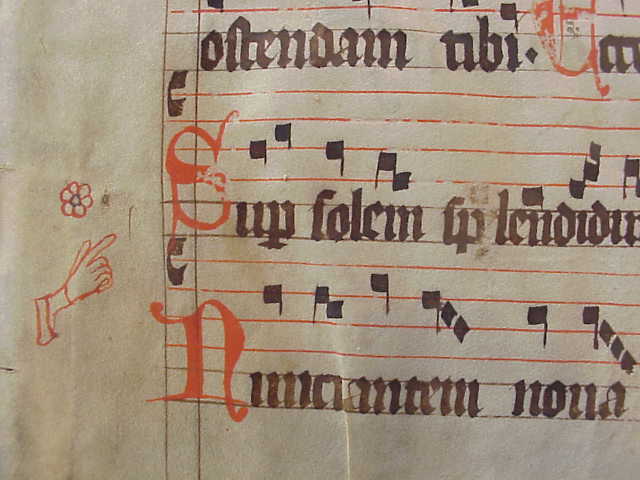 ostendam tibi.
Sup solem splendidu
Nunciantem noua